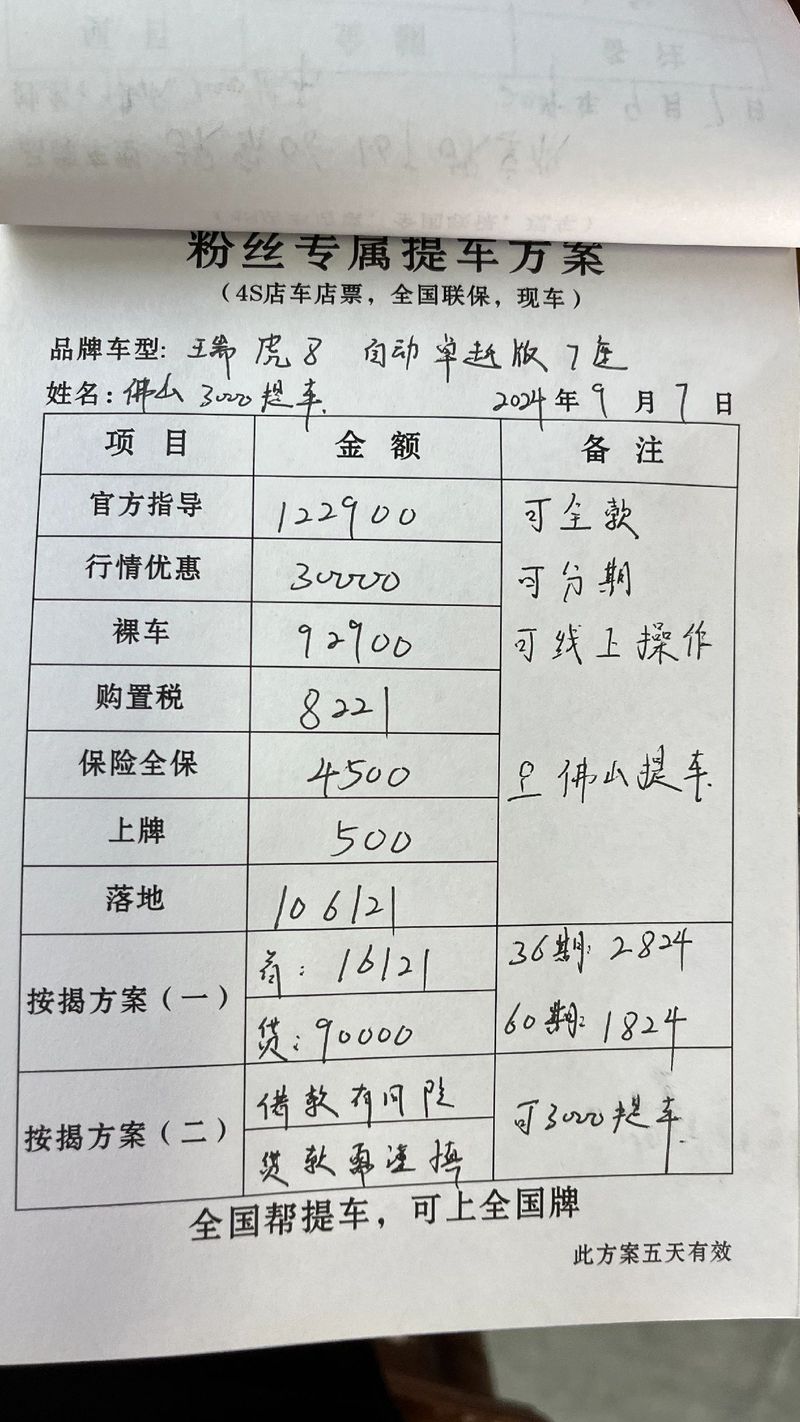 粉丝专属提车方案
(4S店车店票，全国联保，现车)
品牌车型: 瑞虎8 自动卓越版 7座
姓名: 佛山3000提车 2024年9月7日
项目 金额 备注
官方指导 122900 可全款
行情优惠 30000 可分期
裸车 92900 可线上操作
购置税 8221
保险全保 4500 佛山提车
上牌 500
落地 106121
按揭方案(一) 首: 16121 36期: 2824
贷: 90000 60期: 1824
按揭方案(二) 借款有风险 可3000提车
贷款需谨慎
全国帮提车，可上全国牌
此方案五天有效